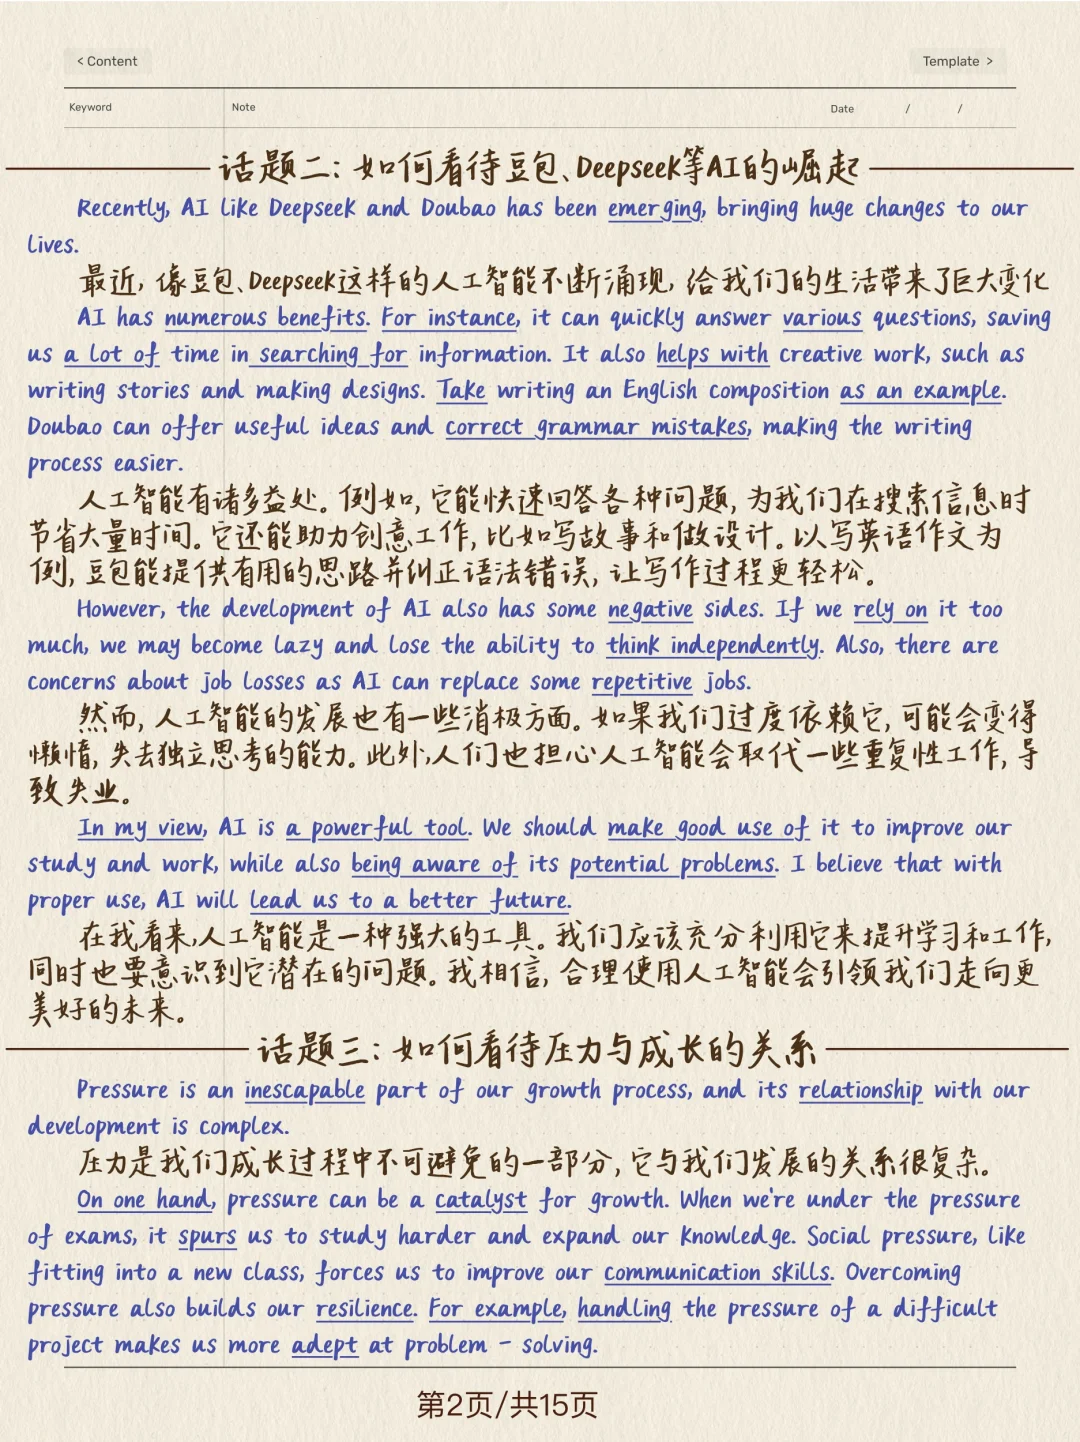 < Content
Template >
Keyword
Note
Date / /
话题二：如何看待豆包、Deepseek等AI的崛起
Recently, AI like Deepseek and Doubao has been emerging, bringing huge changes to our
lives.
最近，像豆包、Deepseek这样的人工智能不断涌现，给我们的生活带来了巨大变化
AI has numerous benefits. For instance, it can quickly answer various questions, saving
us a lot of time in searching for information. It also helps with creative work, such as
writing stories and making designs. Take writing an English composition as an example.
Doubao can offer useful ideas and correct grammar mistakes, making the writing
process easier.
人工智能有诸多益处。例如，它能快速回答各种问题，为我们在搜索信息时
节省大量时间。它还能助力创意工作，比如写故事和做设计。以写英语作文为
例，豆包能提供有用的思路并纠正语法错误，让写作过程更轻松。
However, the development of AI also has some negative sides. If we rely on it too
much, we may become lazy and lose the ability to think independently. Also, there are
concerns about job losses as AI can replace some repetitive jobs.
然而，人工智能的发展也有一些消极方面。如果我们过度依赖它，可能会变得
懒惰，失去独立思考的能力。此外，人们也担心人工智能会取代一些重复性工作，导
致失业。
In my view, AI is a powerful tool. We should make good use of it to improve our
study and work, while also being aware of its potential problems. I believe that with
proper use, AI will lead us to a better future.
在我看来，人工智能是一种强大的工具。我们应该充分利用它来提升学习和工作，
同时也要意识到它潜在的问题。我相信，合理使用人工智能会引领我们走向更
美好的未来。
话题三：如何看待压力与成长的关系
Pressure is an inescapable part of our growth process, and its relationship with our
development is complex.
压力是我们成长过程中不可避免的一部分，它与我们发展的关系很复杂。
On one hand, pressure can be a catalyst for growth. When we're under the pressure
of exams, it spurs us to study harder and expand our knowledge. Social pressure, like
fitting into a new class, forces us to improve our communication skills. Overcoming
pressure also builds our resilience. For example, handling the pressure of a difficult
project makes us more adept at problem - solving.
第2页/共15页